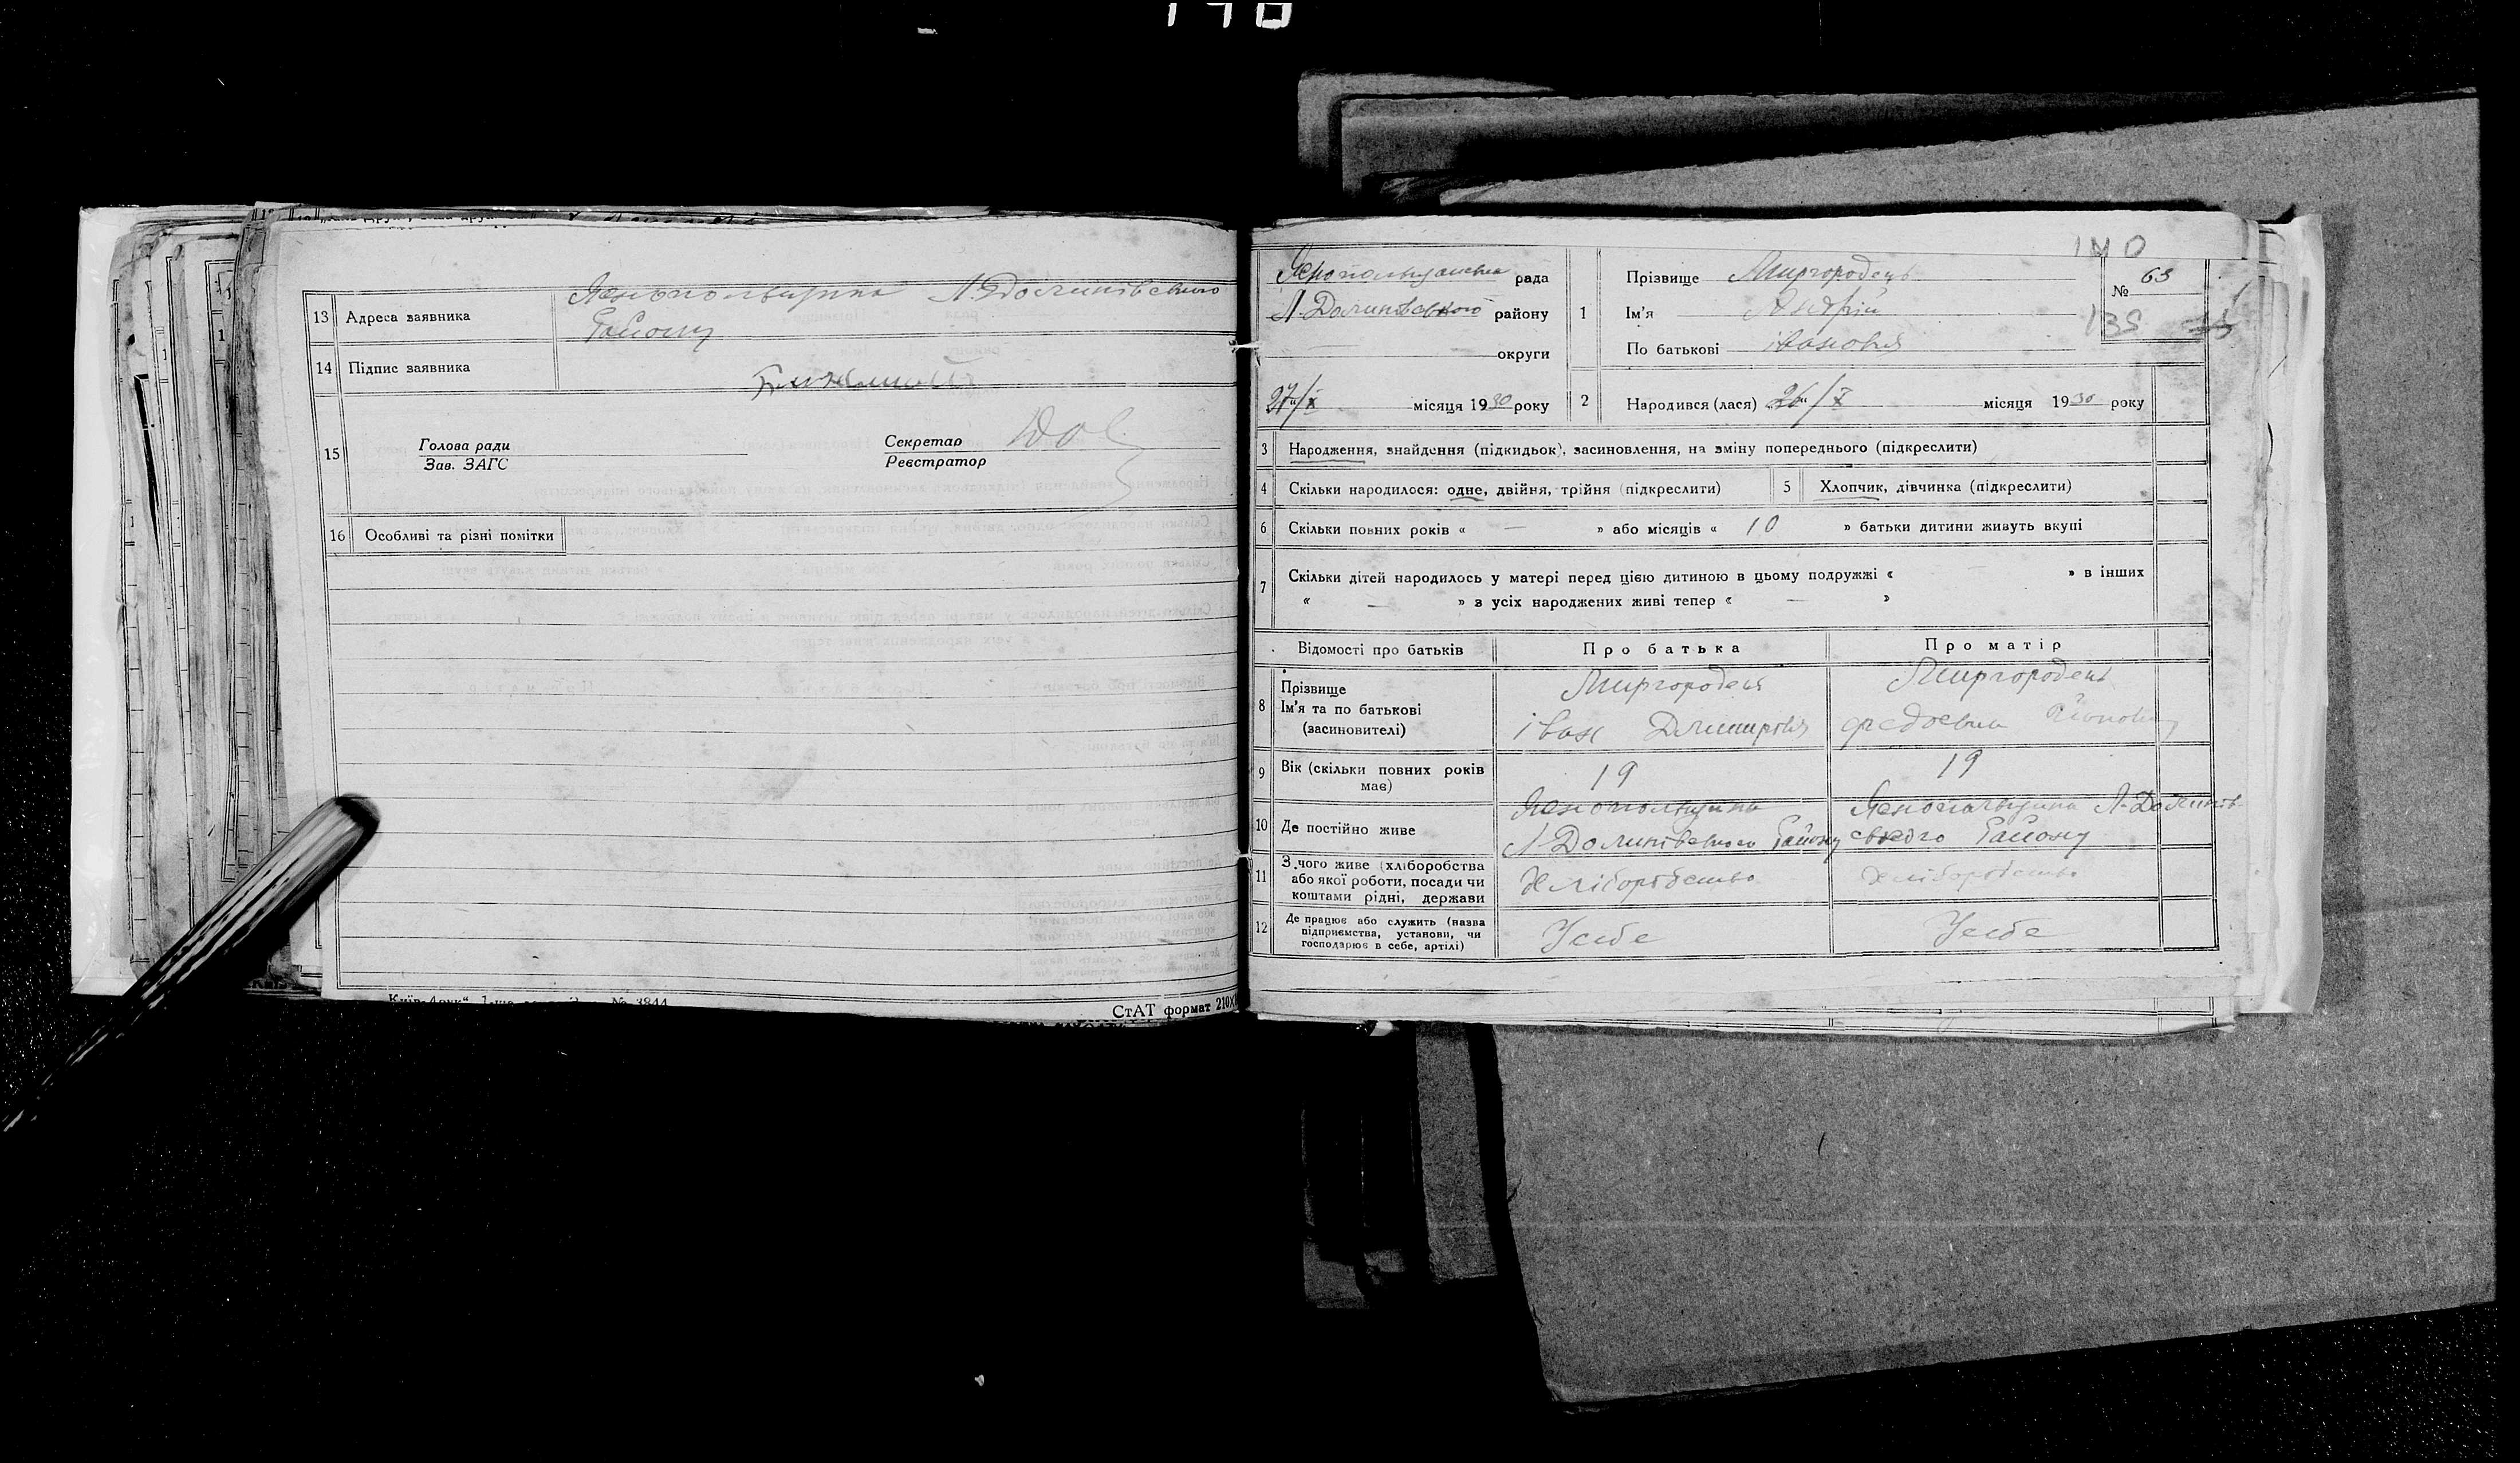 13 Адреса заявника
Яснопольщина Л.Долинівського
Району
14 Підпис заявника
15 Голова ради
Зав. ЗАГС
Секретар
Реєстратор
16 Особливі та різні помітки
№ 3844
СтАТ формат 210X
140
Яснопольщанська рада
Л.Долинівського району
округи
27/X місяця 1930 року
1 Прізвище Миргородець
Ім'я Андрій
По батькові івановіч
№ 63
135
2 Народився (лася) 26/X місяця 1930 року
3 Народження, знайдення (підкидьок), засиновлення, на зміну попереднього (підкреслити)
4 Скільки народилося: одне, двійня, трійня (підкреслити)
5 Хлопчик, дівчинка (підкреслити)
6 Скільки повних років « — » або місяців « 10 » батьки дитини живуть вкупі
7 Скільки дітей народилось у матері перед цією дитиною в цьому подружжі « — » в інших
« — » з усіх народжених живі тепер « — »
Відомості про батьків
Про батька
Про матір
8 Прізвище
Ім'я та по батькові
(засиновителі)
Миргородець
іван Дмитровіч
Миргородець
федосія
9 Вік (скільки повних років має)
19
19
10 Де постійно живе
Яснопольщина
Л-Долинівського Району
Яснопольщина Л-Долинів-
ського Району
11 З чого живе (хліборобства
або якої роботи, посади чи
коштами рідні, держави
Хліборобство
Хліборобство
12 Де працює або служить (назва
підприємства, установи, чи
господарює в себе, артілі)
Усебе
Усебе